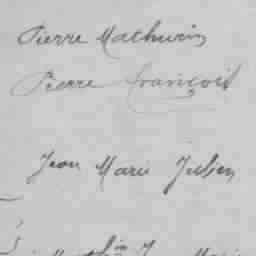 Pierre Mathurin
Pierre françois
Jean Marie Julien